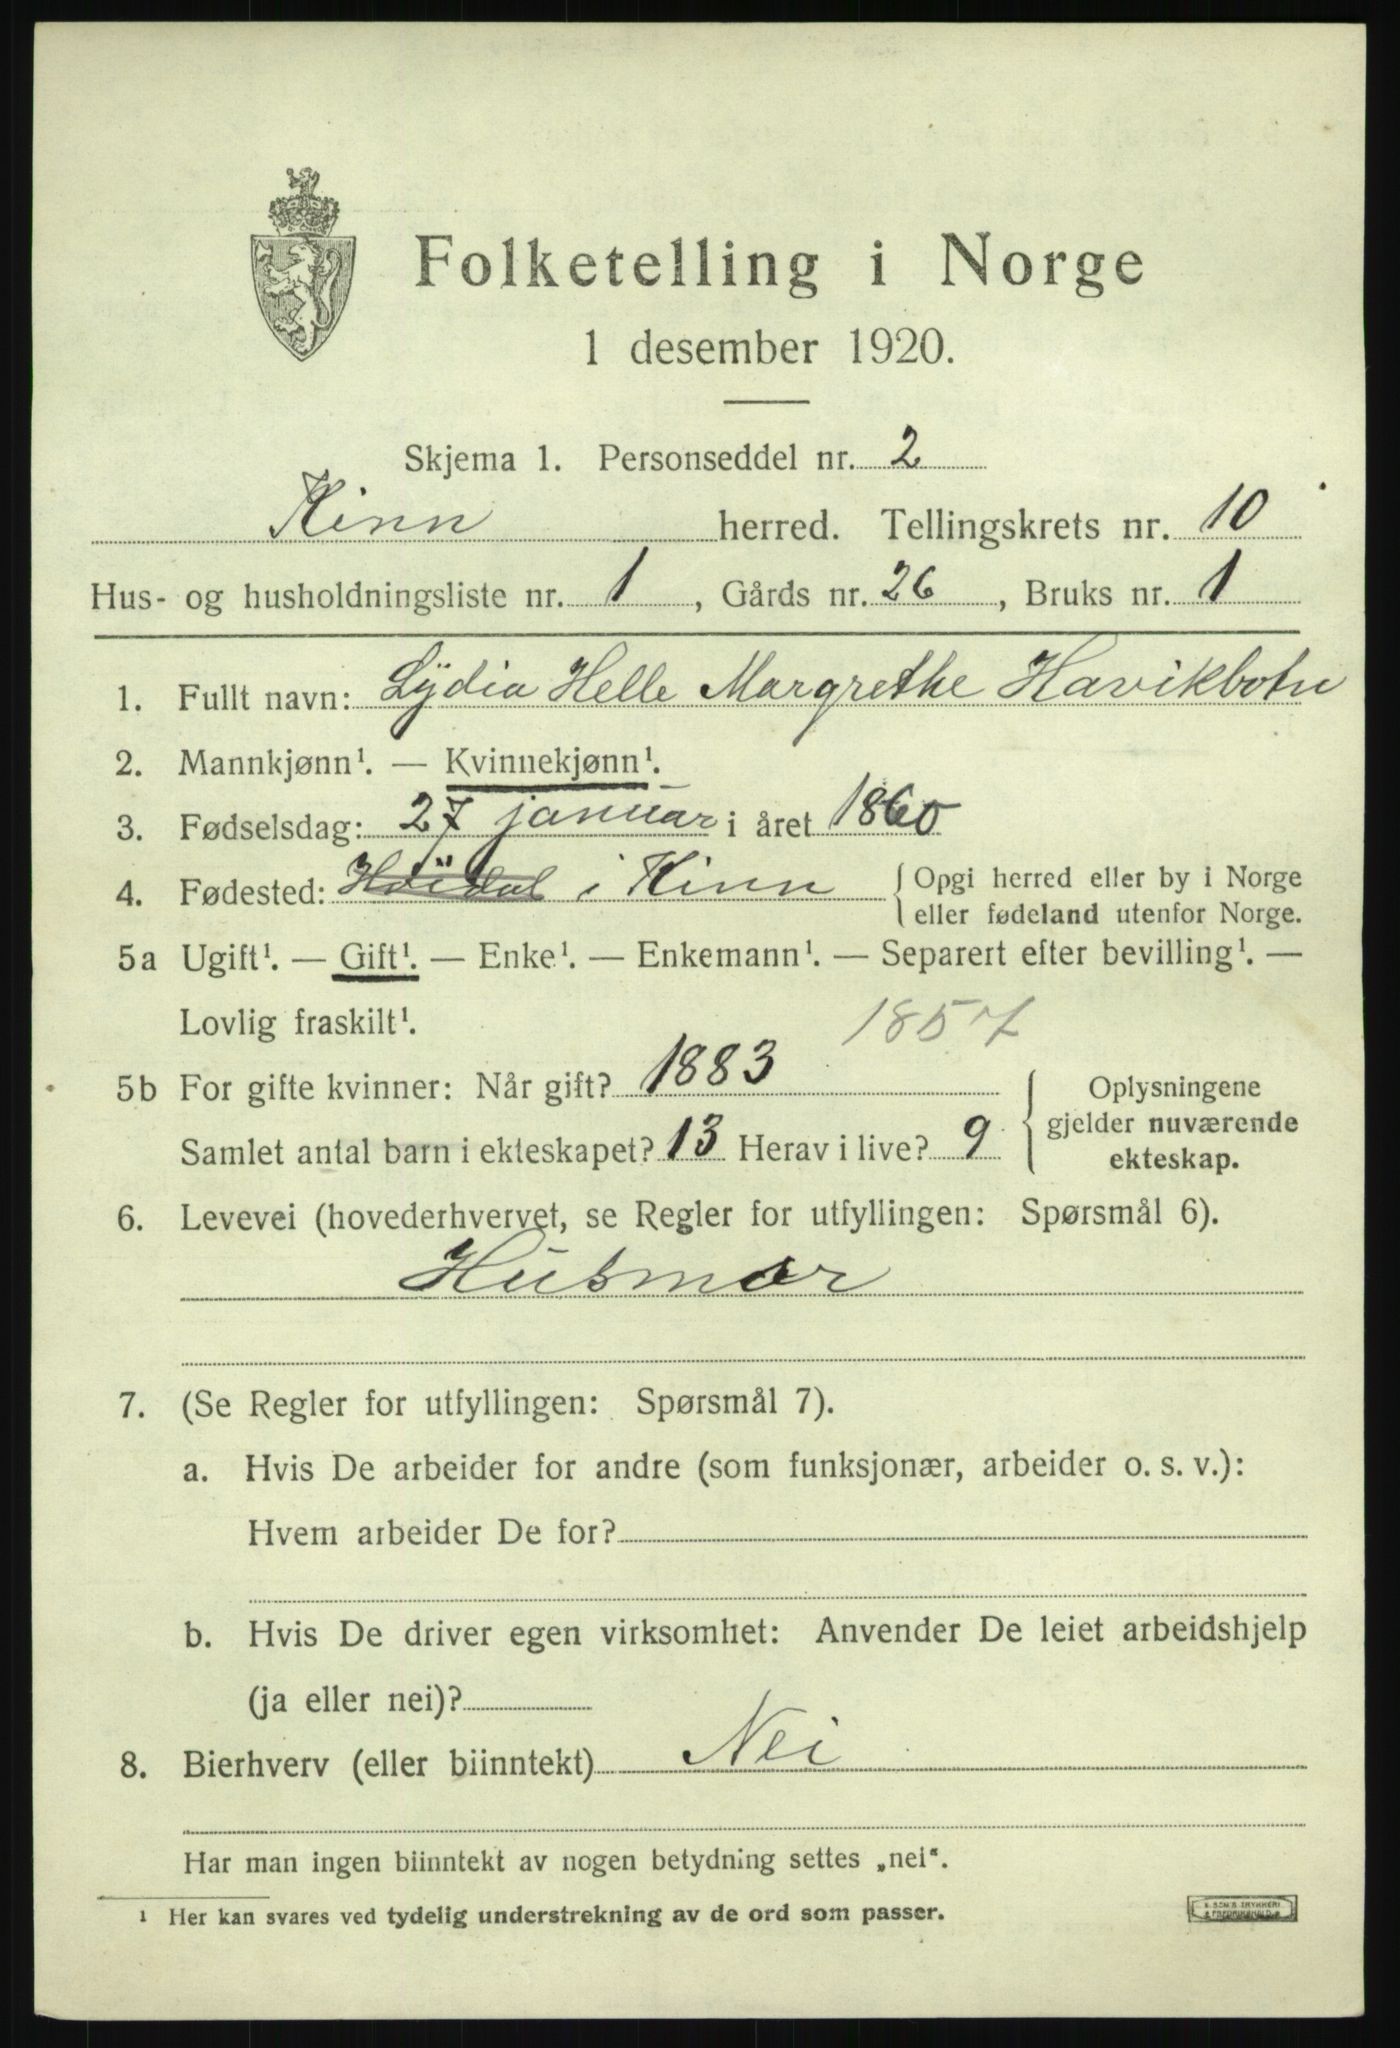 Folketelling i Norge
1 desember 1920.
Skjema 1. Personseddel nr. 2
Kinn herred. Tellingskrets nr. 10
Hus- og husholdningsliste nr. 1, Gårds nr. 26, Bruks nr. 1
1. Fullt navn: Lÿdia Helle Margrethe Havikbotn
2. Mannkjønn¹. — Kvinnekjønn¹.
3. Fødselsdag: 27 januar i året 1860
4. Fødested: Höidal i Kinn { Opgi herred eller by i Norge
eller fødeland utenfor Norge.
5a Ugift¹. — Gift¹. — Enke¹. — Enkemann¹. — Separert efter bevilling¹. —
Lovlig fraskilt¹. 1857
5b For gifte kvinner: Når gift? 1883
Samlet antal barn i ekteskapet? 13 Herav i live? 9
{ Oplysningene
gjelder nuværende
ekteskap.
6. Levevei (hovederhvervet, se Regler for utfyllingen: Spørsmål 6).
Husmor
7. (Se Regler for utfyllingen: Spørsmål 7).
a. Hvis De arbeider for andre (som funksjonær, arbeider o. s. v.):
Hvem arbeider De for?
b. Hvis De driver egen virksomhet: Anvender De leiet arbeidshjelp
(ja eller nei)?
8. Bierhverv (eller biinntekt) Nei
Har man ingen biinntekt av nogen betydning settes „nei“.
¹ Her kan svares ved tydelig understrekning av de ord som passer.